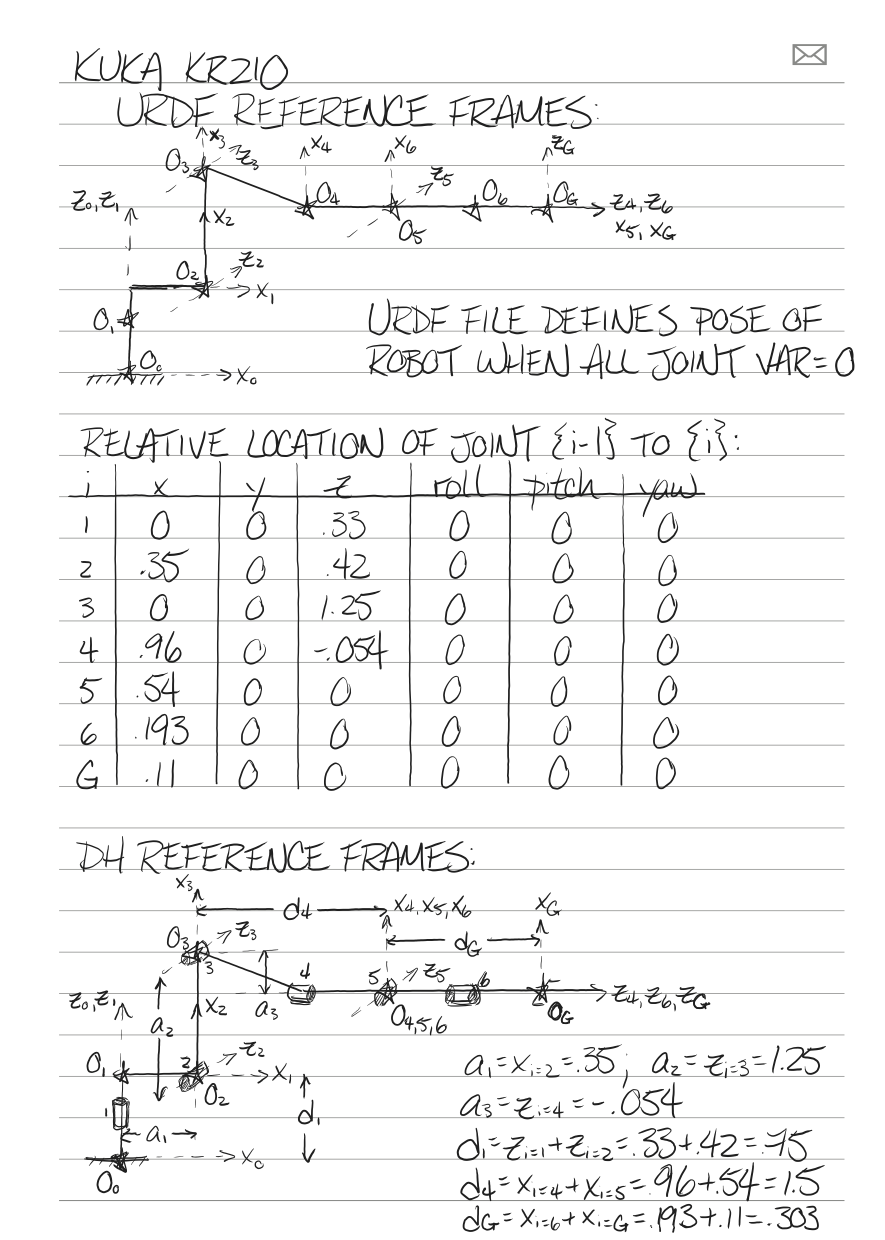 KUKA KR210
URDF REFERENCE FRAMES:
X3
O3 Z3 X4 X6 ZG
Z5
Z0, Z1 O4 O6 OG Z4, Z6
X2 O5 X5, XG
O2 Z2
X1
O1 URDF FILE DEFINES POSE OF
O0 ROBOT WHEN ALL JOINT VAR = 0
X0
RELATIVE LOCATION OF JOINT {i-1} TO {i}:
i x y z roll pitch yaw
1 0 0 .33 0 0 0
2 .35 0 .42 0 0 0
3 0 0 1.25 0 0 0
4 .96 0 -.054 0 0 0
5 .54 0 0 0 0 0
6 .193 0 0 0 0 0
G .11 0 0 0 0 0
DH REFERENCE FRAMES:
X3 d4 X4, X5, X6 XG
O3 Z3 dG
3 4 5 Z5 6
Z0, Z1 a2 X2 a3 O4,5,6 OG Z4, Z6, ZG
O1 2 Z2 X1 a1 = Xi=2 = .35; a2 = Zi=3 = 1.25
O2
1 d1 a3 = Zi=4 = -.054
a1 d1 = Zi=1 + Zi=2 = .33 + .42 = .75
X0 d4 = Xi=4 + Xi=5 = .96 + .54 = 1.5
O0 dG = Xi=6 + Xi=G = .193 + .11 = .303